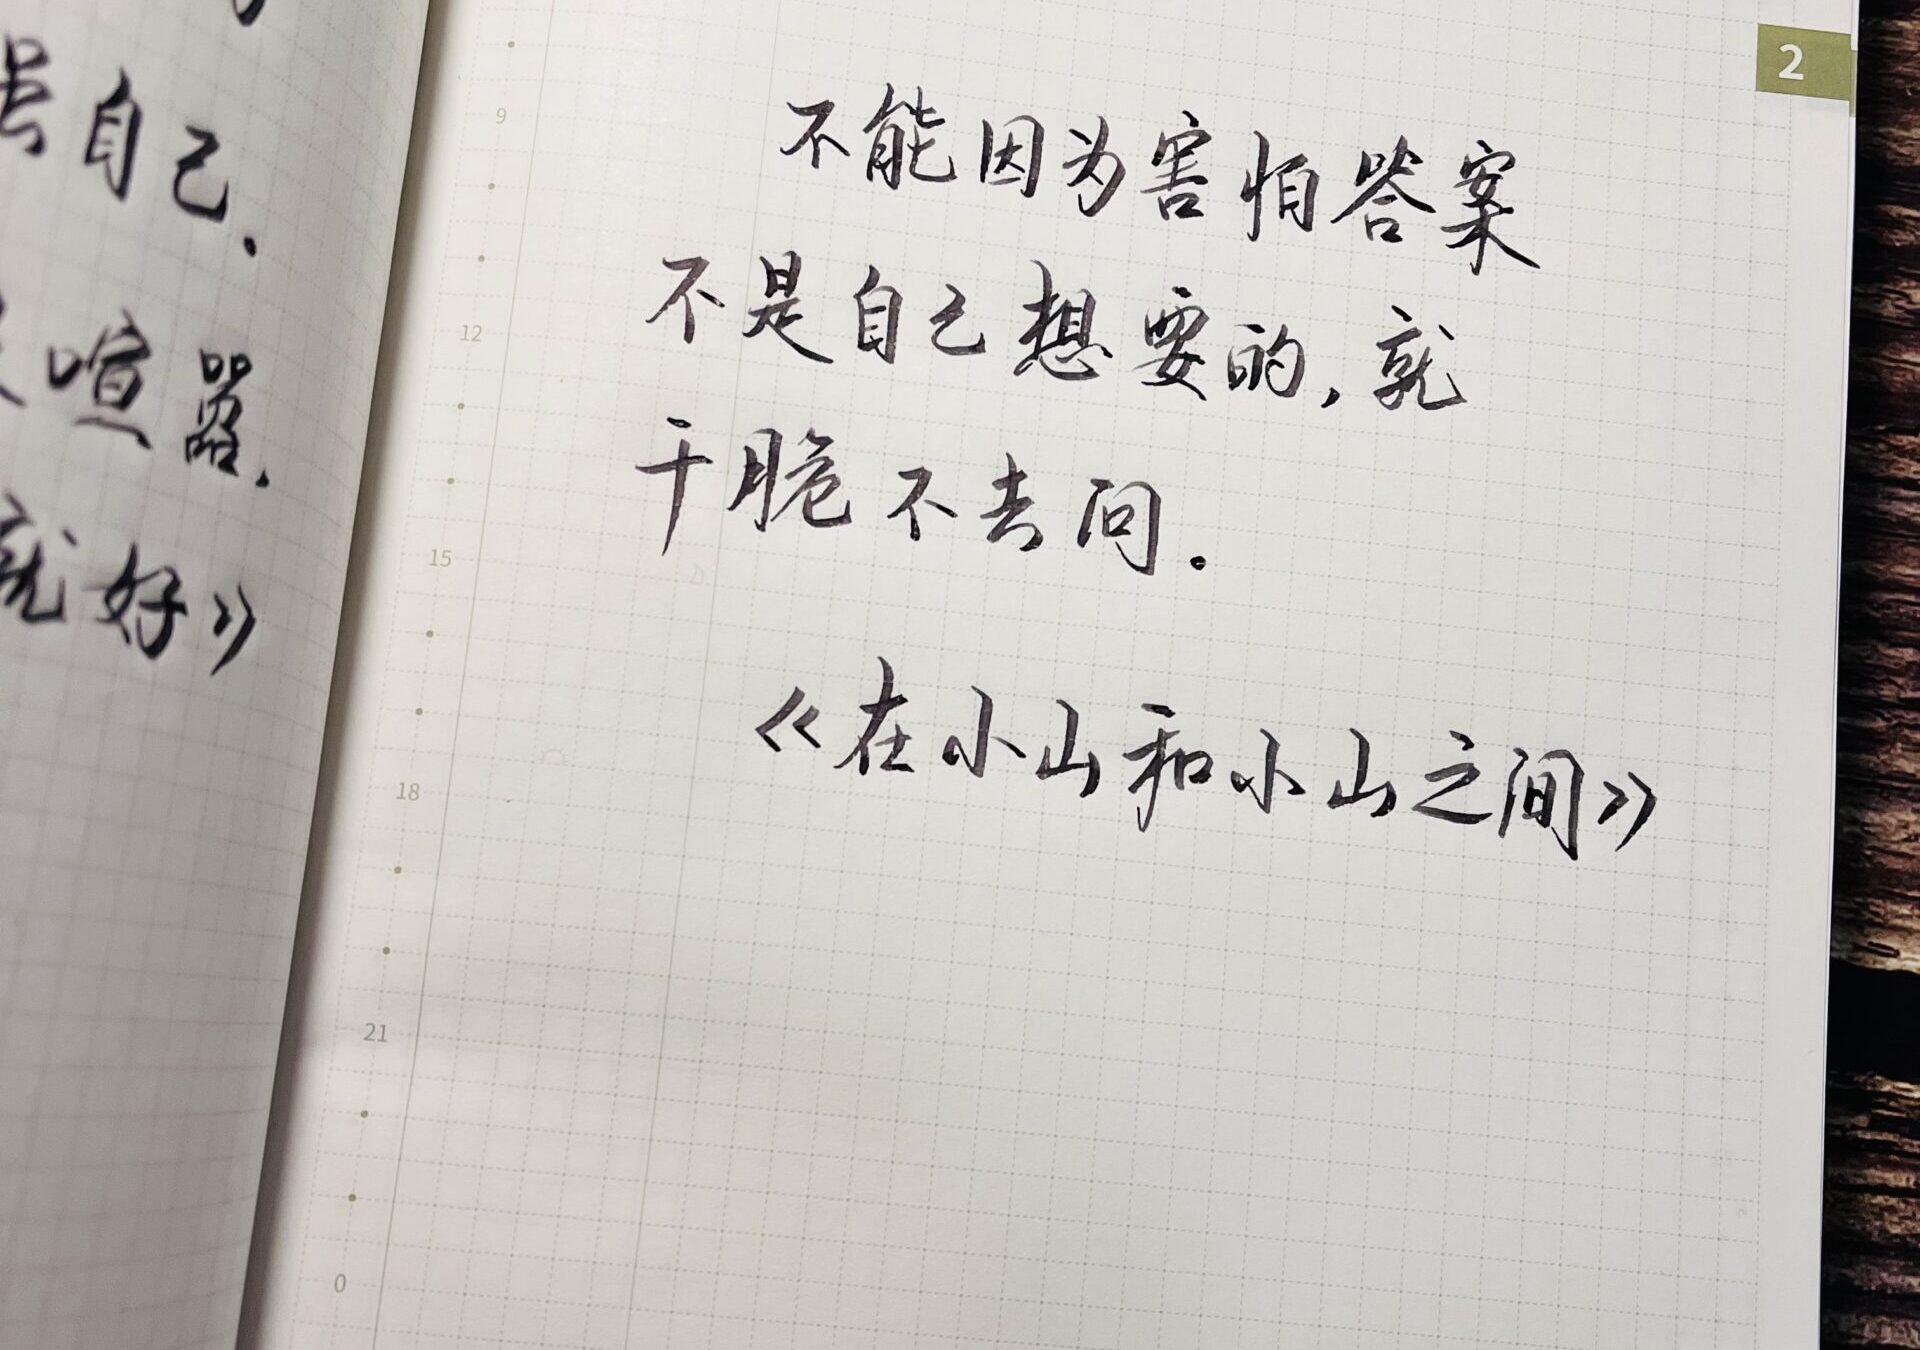 自己.
喧嚣.
就好》
2
不能因为害怕答案
不是自己想要的,就
干脆不去问.
《在小山和小山之间》
9
12
15
18
21
0